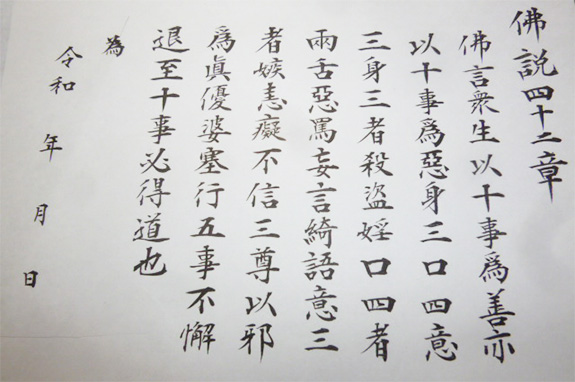 佛説四十二章
佛言衆生以十事爲善亦
以十事爲惡身三口四意
三身三者殺盜婬口四者
兩舌惡罵妄言綺語意三
者嫉恚癡不信三尊以邪
爲眞優婆塞行五事不懈
退至十事必得道也
為
令和 年 月 日